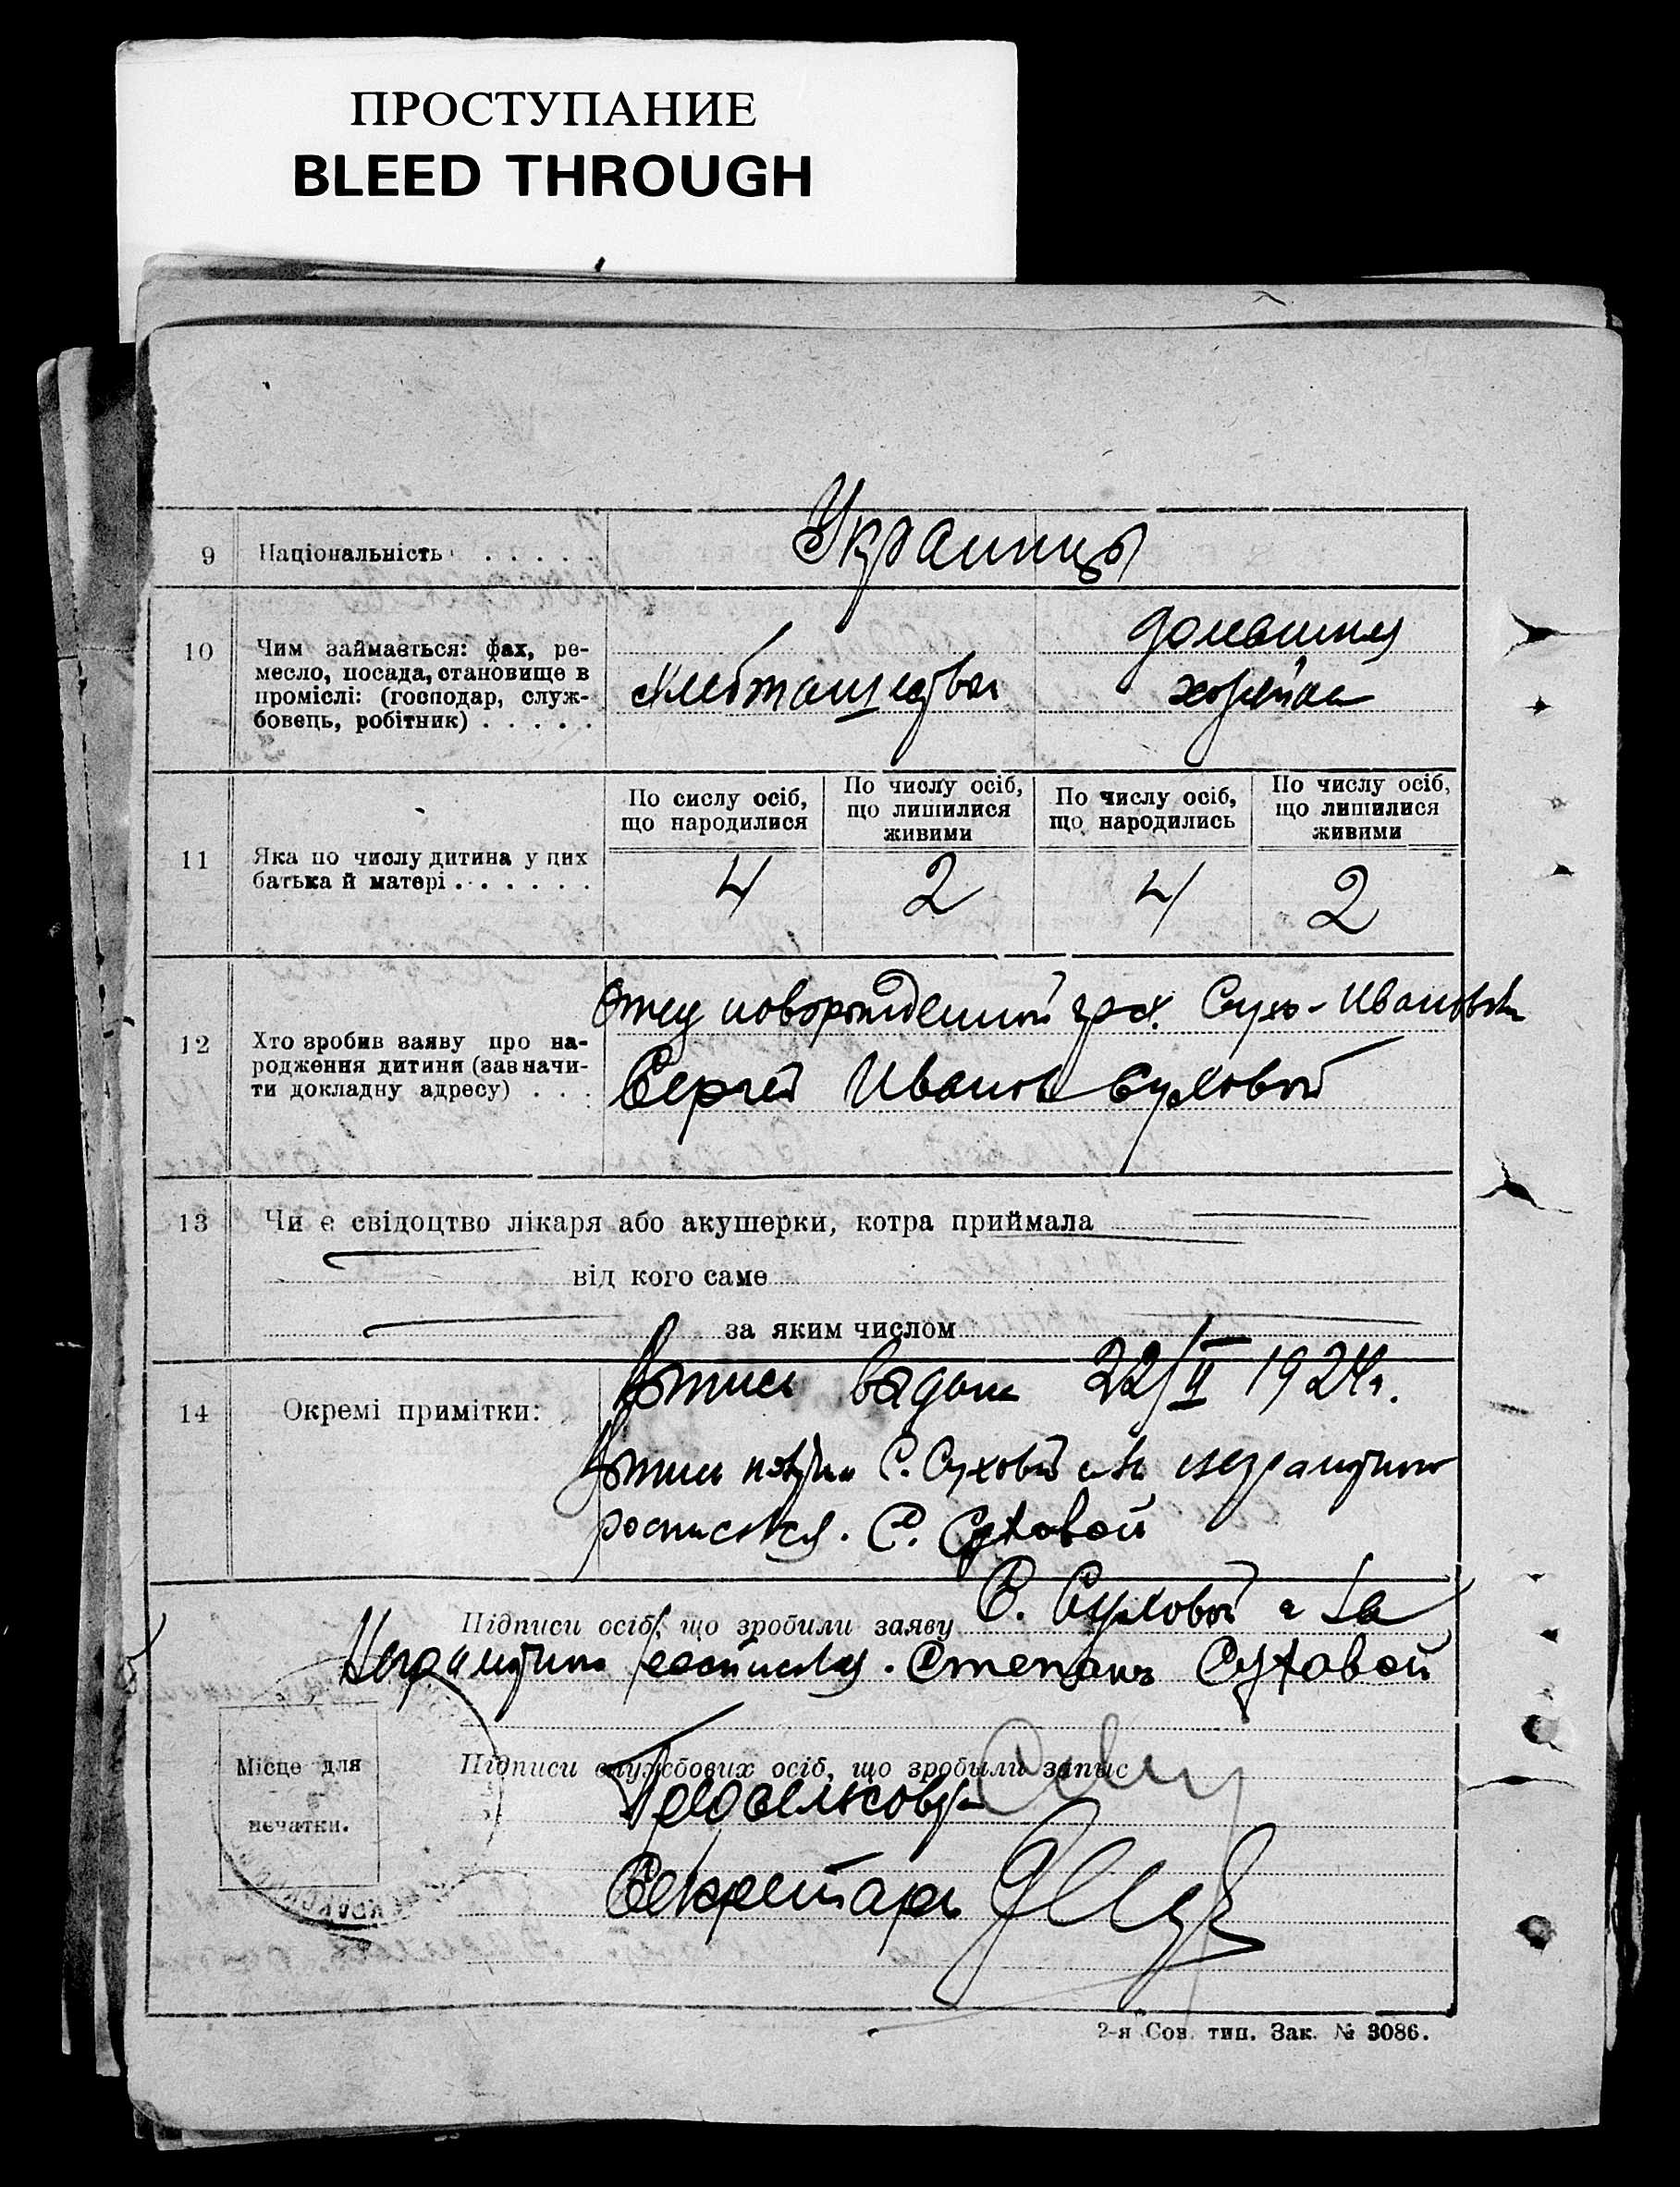 ПРОСТУПАНИЕ
BLEED THROUGH
9 Національність Украинцы
10 Чим займається: фах, ре-
месло, посада, становище в
проміслі: (господар, служ-
бовець, робітник)
хозяйка
По сислу осіб,
що народилися
По числу осіб,
що лишилися
живими
По числу осіб,
що народились
По числу осіб,
що лишилися
живими
11 Яка по числу дитина у цих
батька й матері
4 2 4 2
12 Хто зробив заяву про на-
родження дитини (зазначи-
ти докладну адресу)
Отец новорожденной гр. с. Сухо-Ивановки
Сергей Иванов Суховой
13 Чи є свідоцтво лікаря або акушерки, котра приймала
від кого саме
за яким числом
14 Окремі примітки:
22/II 1924 г.
С. Суховой неграмотного
росписался. С. Суховой
Підписи осіб, що зробили заяву С. Суховой а за
Неграмотного росписался. Степанъ Суховой
Підписи службових осіб, що зробыли запыс
Місце для
печатки.
Секретарь
2-я Сов. тип. Зак. № 3086.